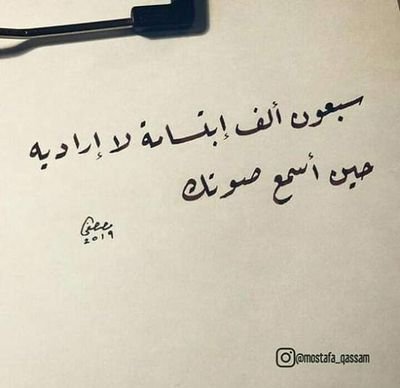 سبعون ألف إبتسامة لا إراديه
حين أسمع صوتك
مصطفى
2019
@mostafa_qassam